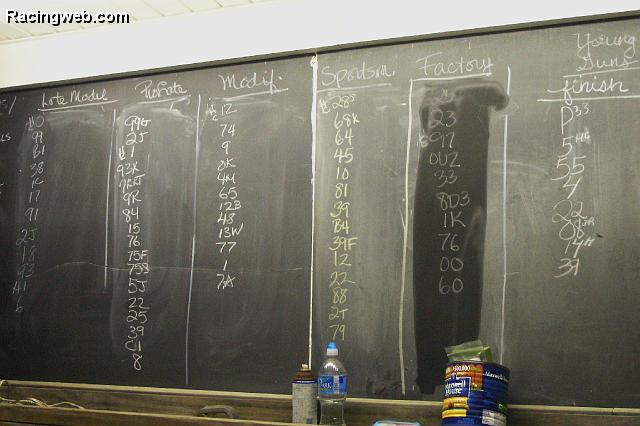 Racingweb.com
Late Model
99
61
38
1K
17
91
2J
18
93
41
6
ProRate
99G
2J
1
93K
7KJ
9R
84
15
76
75F
75B
5J
22
25
39
C1
8
Modif.
12
74
9
0K
4M
65
12B
48
13W
77
1
7A
Sportsm.
28S
68K
64
45
10
81
39
B4
39F
12
22
88
2T
79
Factory
23
917
0UZ
33
8D3
1K
76
00
60
Young
Guns
finish
P33
5
55
4
22
08JR
74H
37
Maxwell
House